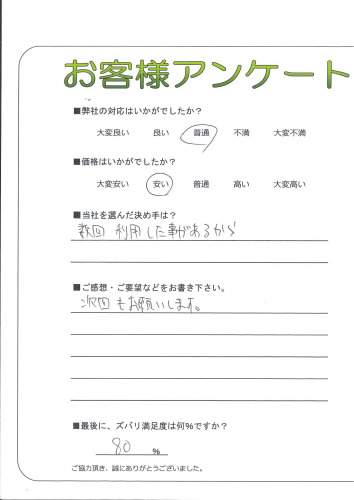 お客様アンケート
■弊社の対応はいかがでしたか？
大変良い 良い 普通 不満 大変不満
■価格はいかがでしたか？
大変安い 安い 普通 高い 大変高い
■当社を選んだ決め手は？
数回 利用した事があるから
■ご感想・ご要望などをお書き下さい。
次回もお願いします。
■最後に、ズバリ満足度は何%ですか？
80 %
ご協力頂き、誠にありがとうございました。